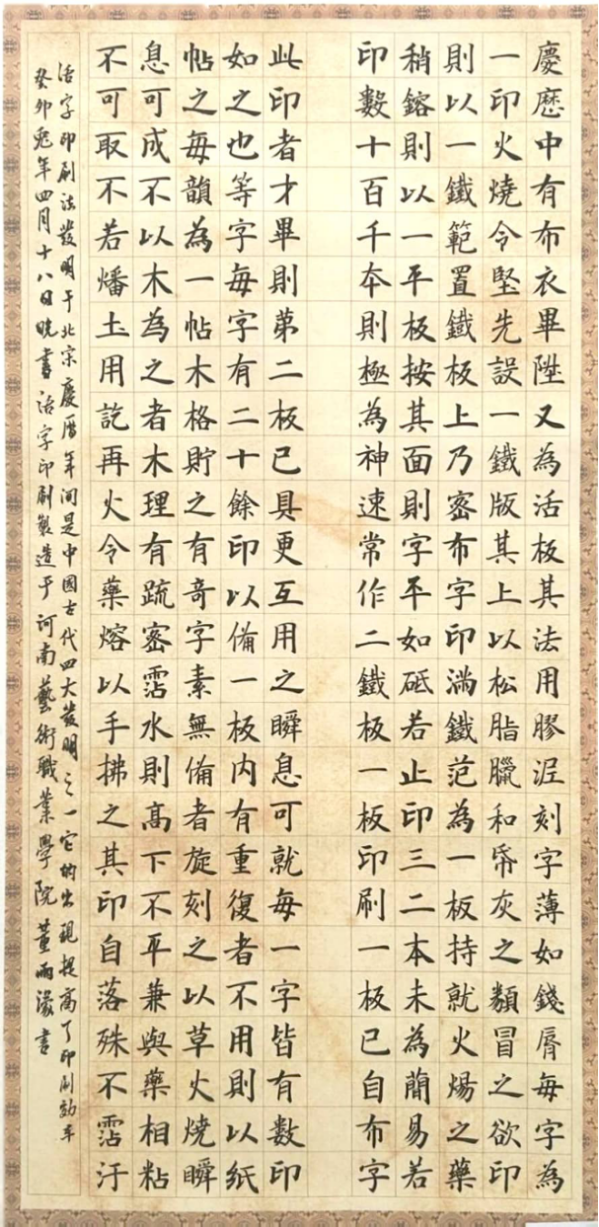 慶歷中有布衣畢陞又為活板其法用膠泥刻字薄如錢脣每字為
一印火燒令堅先設一鐵版其上以松脂臘和帋灰之類冒之欲印
則以一鐵範置鐵板上乃密布字印滿鐵范為一板持就火煬之藥
稍鎔則以一平板按其面則字平如砥若止印三二本未為簡易若
印數十百千本則極為神速常作二鐵板一板印刷一板已自布字
此印者才畢則第二板已具更互用之瞬息可就每一字皆有數印
如之也等字每字有二十餘印以備一板内有重復者不用則以紙
帖之每韻為一帖木格貯之有奇字素無備者旋刻之以草火燒瞬
息可成不以木為之者木理有疏密霑水則高下不平兼與藥相粘
不可取不若燔土用訖再火令藥熔以手拂之其印自落殊不霑汙
活字印刷法發明于北宋慶曆年间是中國古代四大發明之一它的出現提高了印刷効率
癸卯兔年四月十八日晚書活字印刷製造于河南藝術職業學院董雨濛書